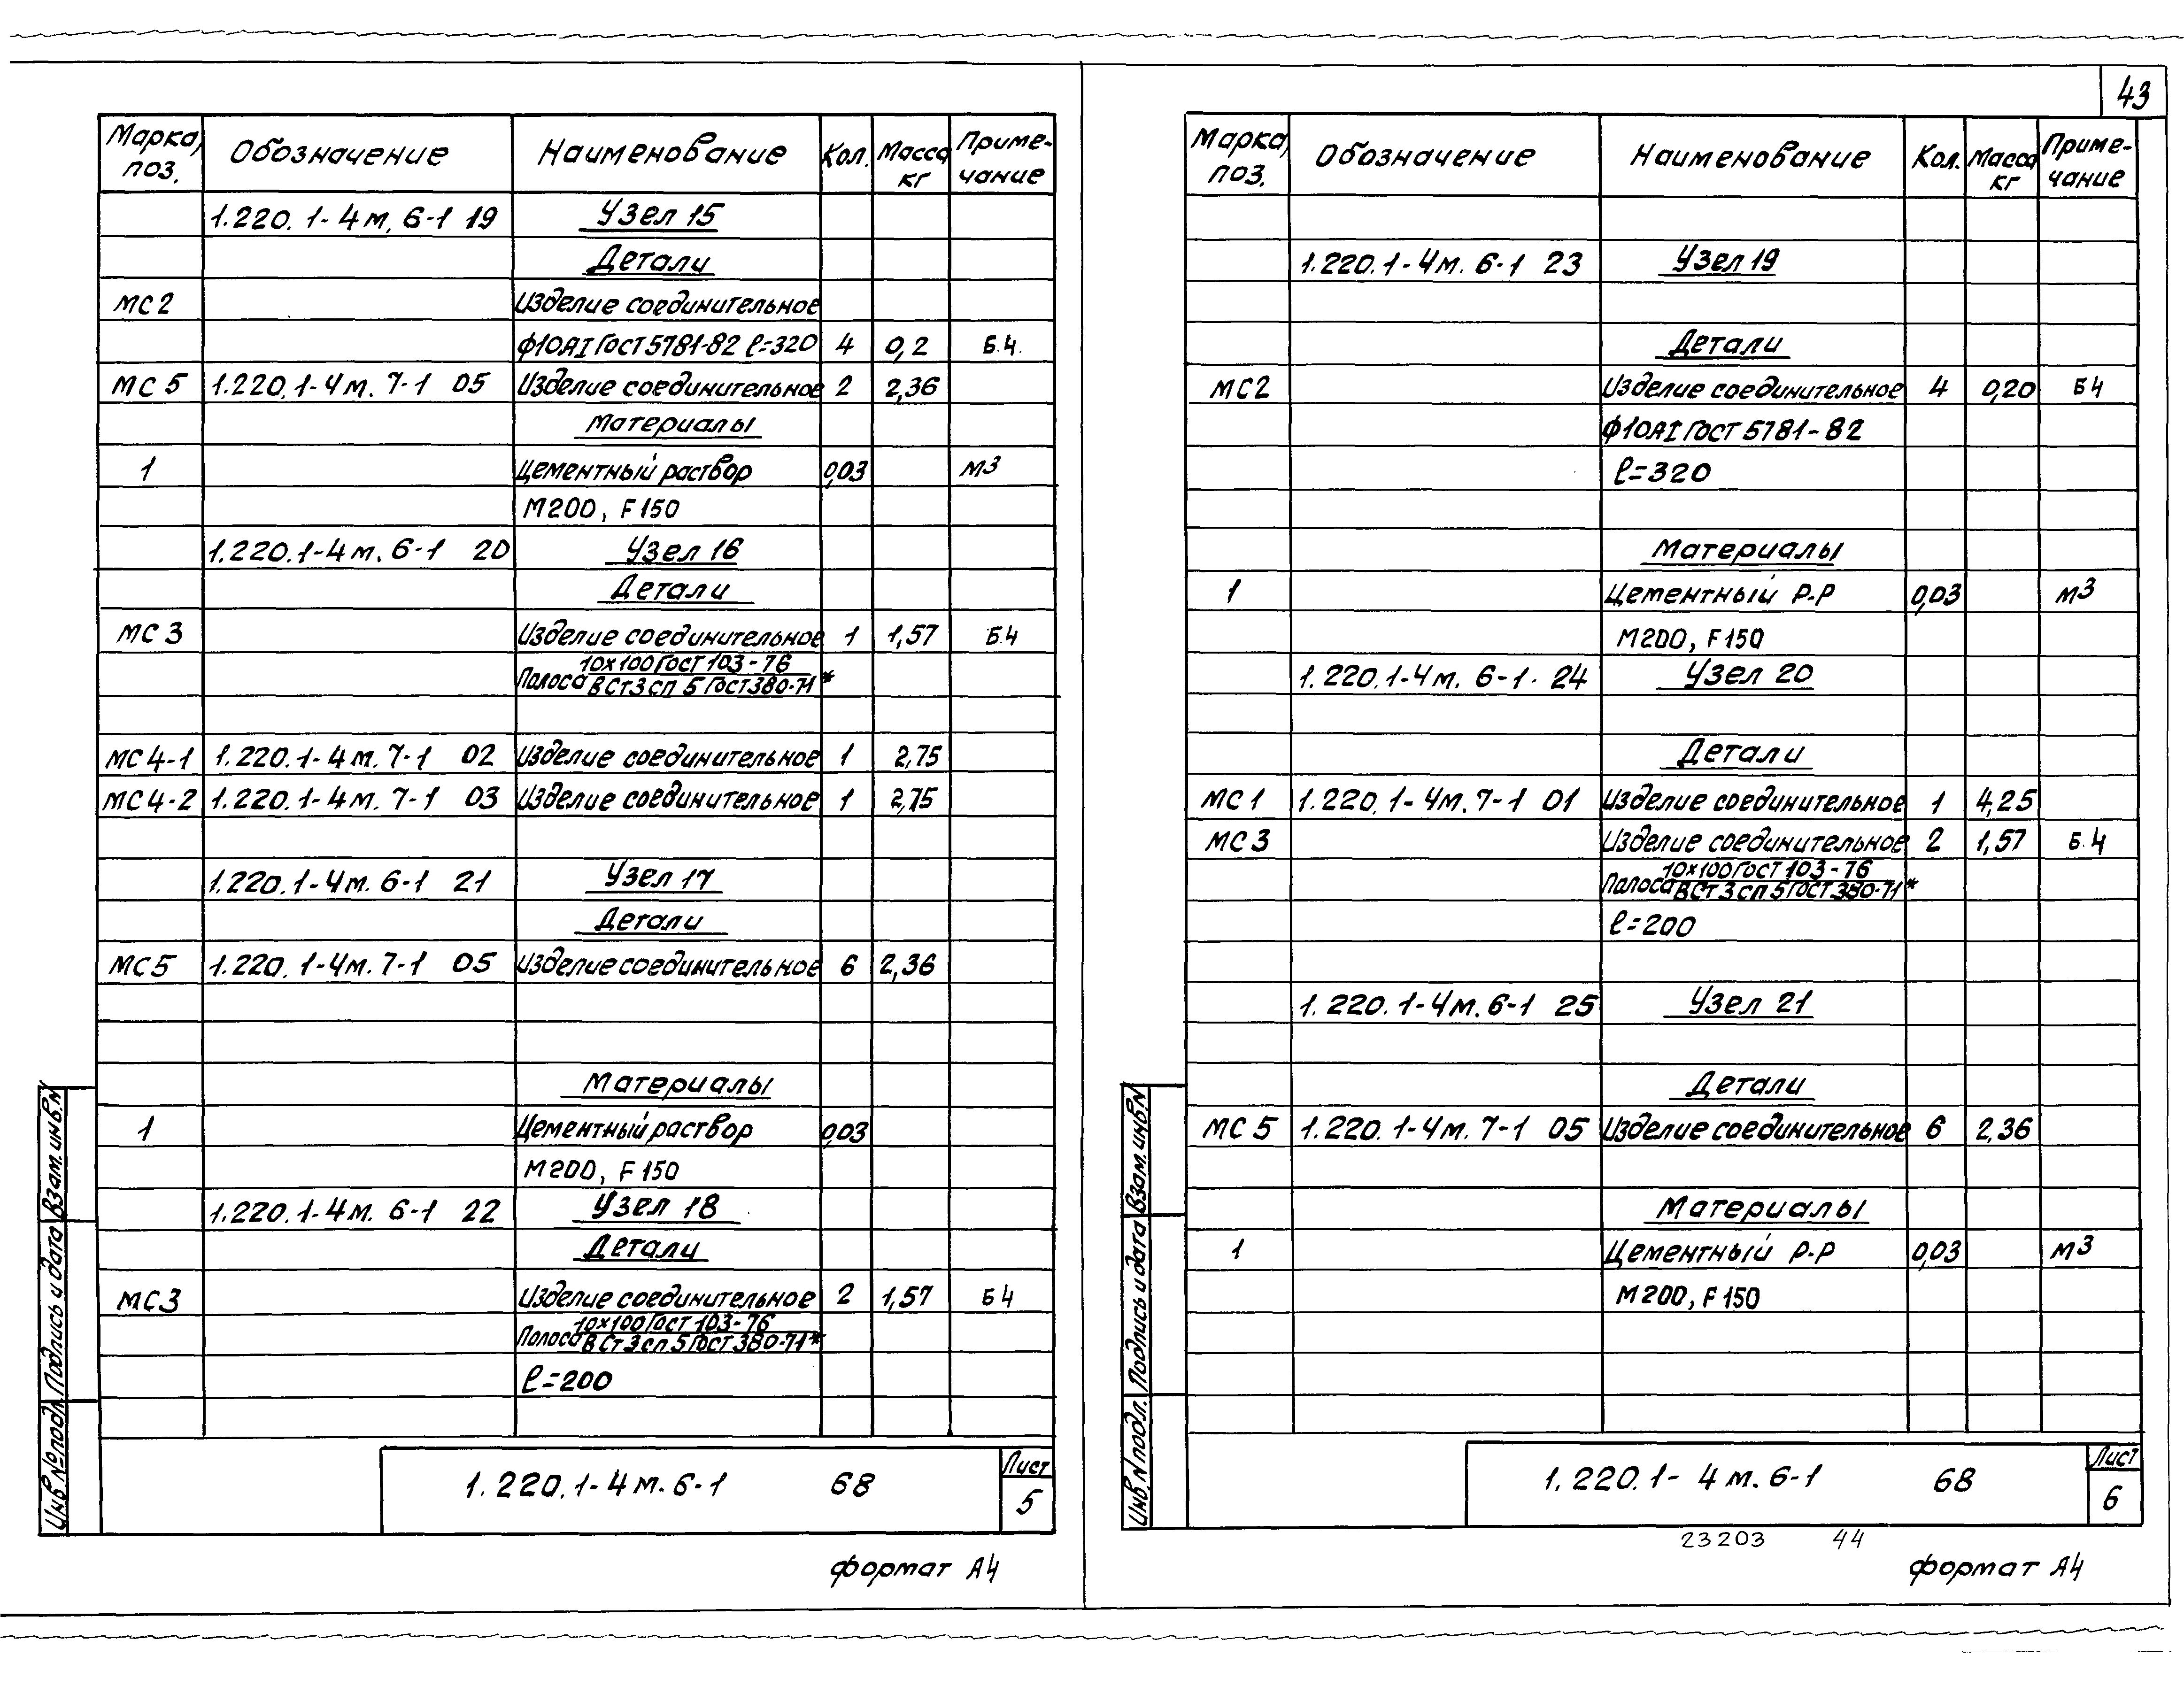 43
Марка, поз. Обозначение Наименование Кол. Масса кг Приме-чание
1.220.1-4м.6-1 19 Узел 15
Детали
МС2 Изделие соединительное
ф10АI ГОСТ 5781-82 ℓ=320 4 0,2 Б.4.
МС5 1.220.1-4м.7-1 05 Изделие соединительное 2 2,36
Материалы
1 Цементный раствор 0,03 м3
М200, F150
1.220.1-4м.6-1 20 Узел 16
Детали
МС3 Изделие соединительное 1 1,57 Б.4
10х100 ГОСТ 103-76
Полоса ВСт3сп5 ГОСТ 380-71*
МС4-1 1.220.1-4м.7-1 02 Изделие соединительное 1 2,75
МС4-2 1.220.1-4м.7-1 03 Изделие соединительное 1 2,75
1.220.1-4м.6-1 21 Узел 17
Детали
МС5 1.220.1-4м.7-1 05 Изделие соединительное 6 2,36
Материалы
1 Цементный раствор 0,03
М200, F150
1.220.1-4м.6-1 22 Узел 18
Детали
МС3 Изделие соединительное 2 1,57 Б4
10х100 ГОСТ 103-76
Полоса ВСт3сп5 ГОСТ 380-71*
ℓ=200
Взам. инв.N
Подпись и дата
Инв.№ подл.
1.220.1-4м.6-1 68 Лист 5
формат А4
Марка, поз. Обозначение Наименование Кол. Масса кг Приме-чание
1.220.1-4м.6-1 23 Узел 19
Детали
МС2 Изделие соединительное 4 0,20 Б4
ф10АI ГОСТ 5781-82
ℓ=320
Материалы
1 Цементный р-р 0,03 м3
М200, F150
1.220.1-4м.6-1. 24 Узел 20
Детали
МС1 1.220.1-4м.7-1 01 Изделие соединительное 1 4,25
МС3 Изделие соединительное 2 1,57 Б.4
10х100 ГОСТ 103-76
Полоса ВСт3сп5 ГОСТ 380-71*
ℓ=200
1.220.1-4м.6-1 25 Узел 21
Детали
МС5 1.220.1-4м.7-1 05 Изделие соединительное 6 2,36
Материалы
1 Цементный р-р 0,03 м3
М200, F150
Взам. инв.N
Подпись и дата
Инв.N подл.
1.220.1-4м.6-1 68 Лист 6
23203 44
формат А4